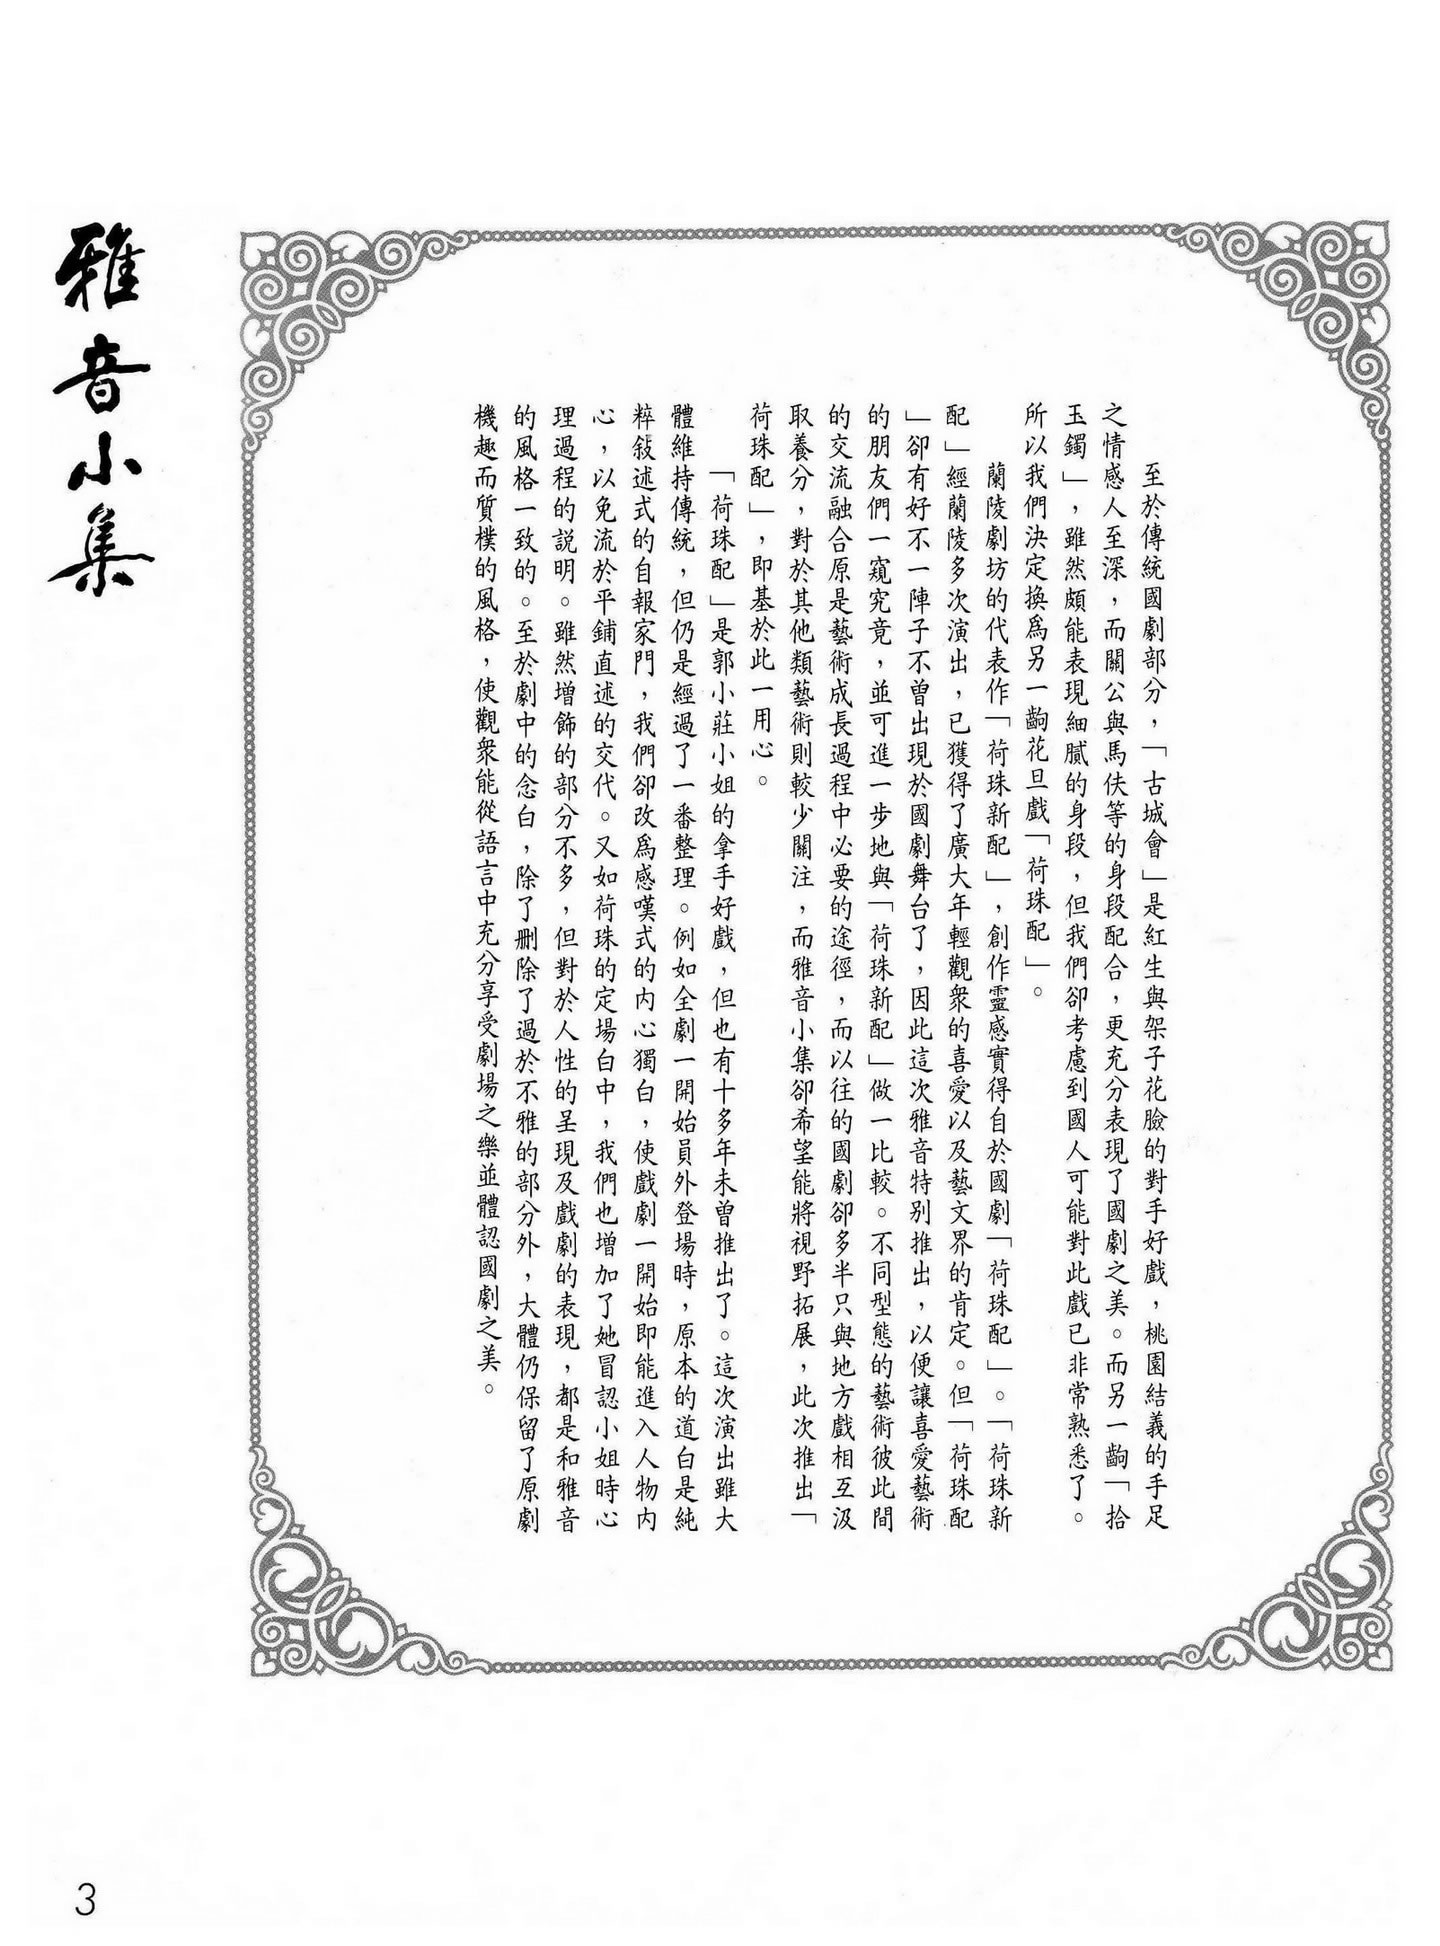 雅音小集
至於傳統國劇部分，「古城會」是紅生與架子花臉的對手好戲，桃園結義的手足
之情感人至深，而關公與馬伕等的身段配合，更充分表現了國劇之美。而另一齣「拾
玉鐲」，雖然頗能表現細膩的身段，但我們卻考慮到國人可能對此戲已非常熟悉了。
所以我們決定換爲另一齣花旦戲「荷珠配」。
蘭陵劇坊的代表作「荷珠新配」，創作靈感實得自於國劇「荷珠配」。「荷珠新
配」經蘭陵多次演出，已獲得了廣大年輕觀衆的喜愛以及藝文界的肯定。但「荷珠配
」卻有好不一陣子不曾出現於國劇舞台了，因此這次雅音特別推出，以便讓喜愛藝術
的朋友們一窺究竟，並可進一步地與「荷珠新配」做一比較。不同型態的藝術彼此間
的交流融合原是藝術成長過程中必要的途徑，而以往的國劇卻多半只與地方戲相互汲
取養分，對於其他類藝術則較少關注，而雅音小集卻希望能將視野拓展，此次推出「
荷珠配」，即基於此一用心。
「荷珠配」是郭小莊小姐的拿手好戲，但也有十多年未曾推出了。這次演出雖大
體維持傳統，但仍是經過了一番整理。例如全劇一開始員外登場時，原本的道白是純
粹敍述式的自報家門，我們卻改爲感嘆式的內心獨白，使戲劇一開始即能進入人物內
心，以免流於平鋪直述的交代。又如荷珠的定場白中，我們也增加了她冒認小姐時心
理過程的說明。雖然增飾的部分不多，但對於人性的呈現及戲劇的表現，都是和雅音
的風格一致的。至於劇中的念白，除了刪除了過於不雅的部分外，大體仍保留了原劇
機趣而質樸的風格，使觀衆能從語言中充分享受劇場之樂並體認國劇之美。
3